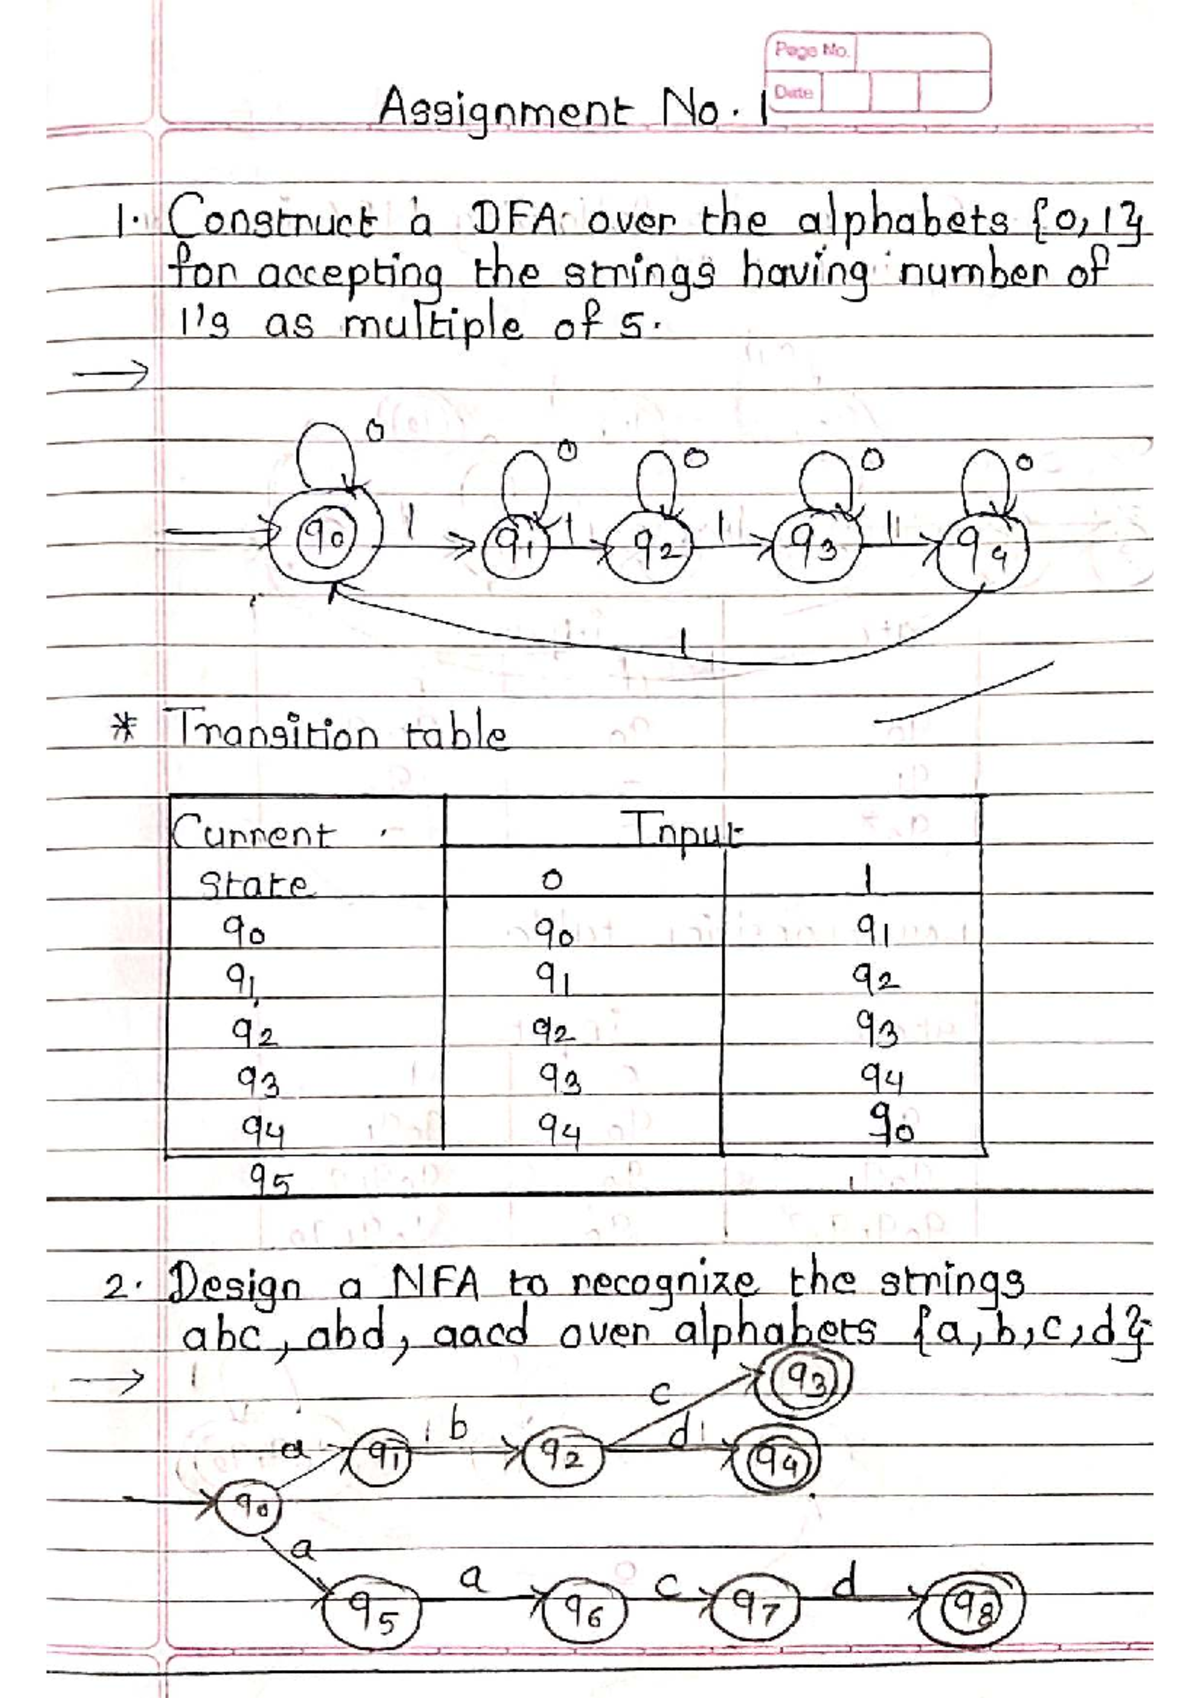 Page No.
Date
Assignment No. 1
1. Construct a DFA over the alphabets {0,1}
for accepting the strings having number of
1's as multiple of 5.
→
0 0 0 0 0
q0 1 q1 1 q2 1 q3 1 q4
1
* Transition table
Current Input
State 0 1
q0 q0 q1
q1 q1 q2
q2 q2 q3
q3 q3 q4
q4 q4 q0
q5
2. Design a NFA to recognize the strings
abc, abd, aacd over alphabets {a,b,c,d}
→
c q3
a q1 b q2 d q4
q0
a
q5 a q6 c q7 d q8